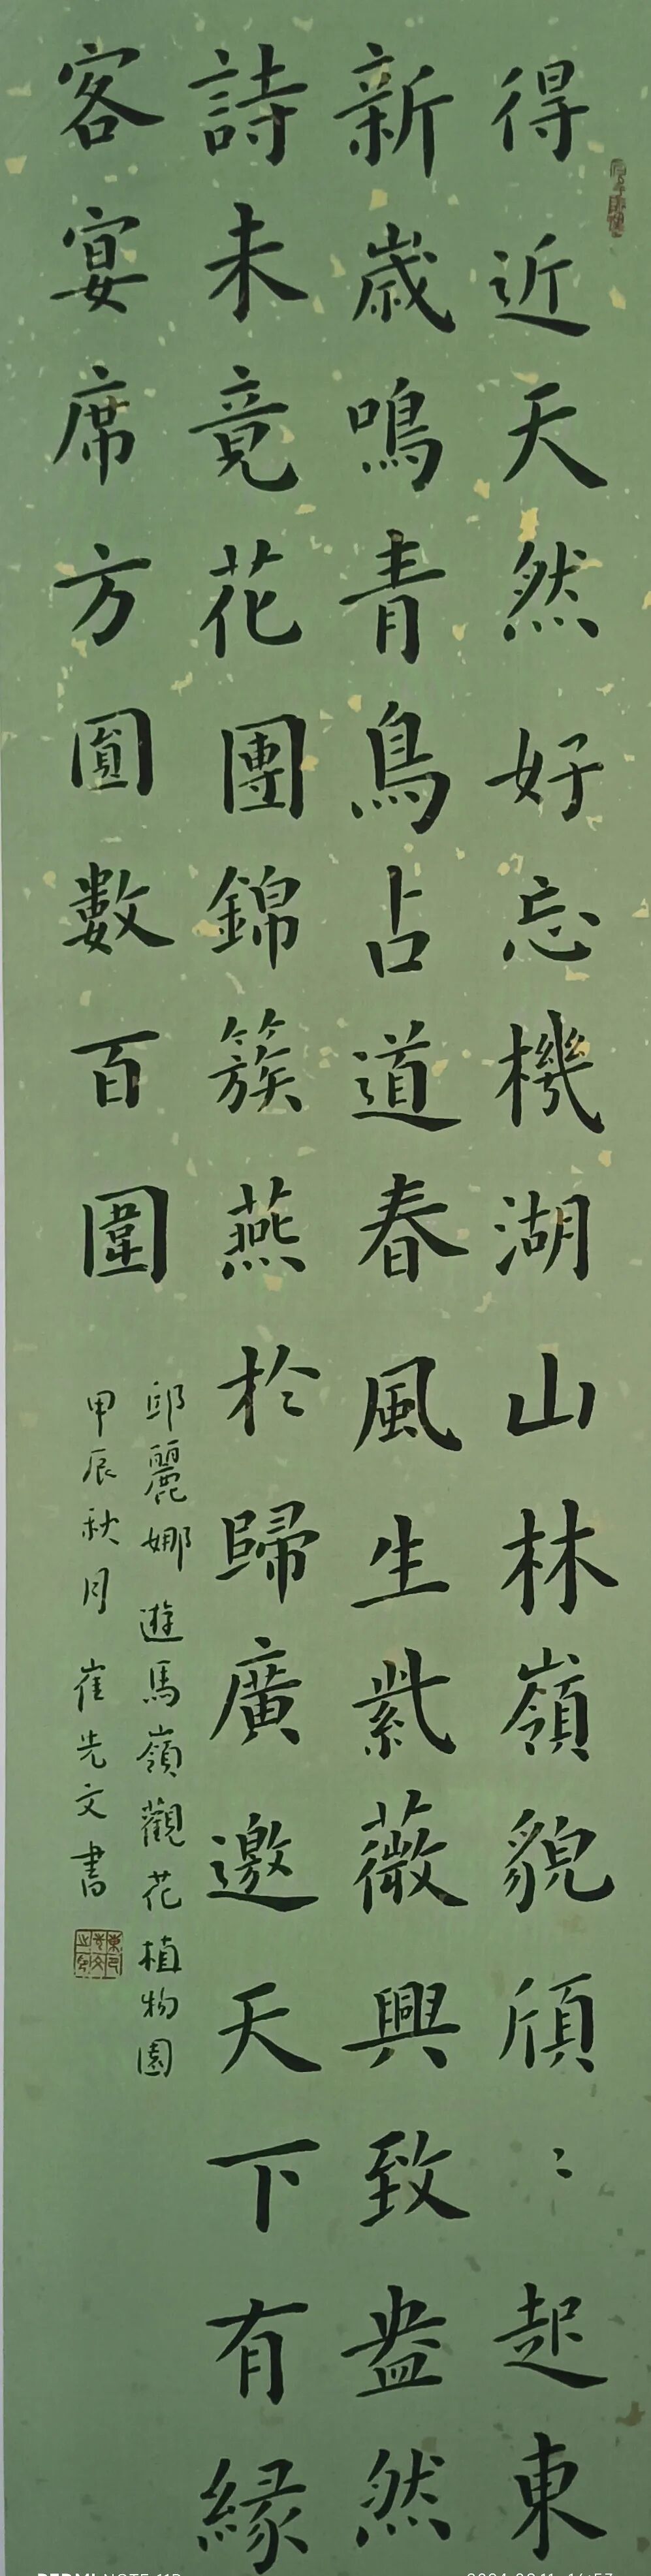 得近天然好忘機湖山林嶺貌頎〻起東
新歲鳴青鳥占道春風生紫薇興致盎然
詩未竟花團錦簇燕於歸廣邀天下有緣
客宴席方圓數百圍
邱麗娜遊馬嶺觀花植物園
甲辰秋月 崔先文書